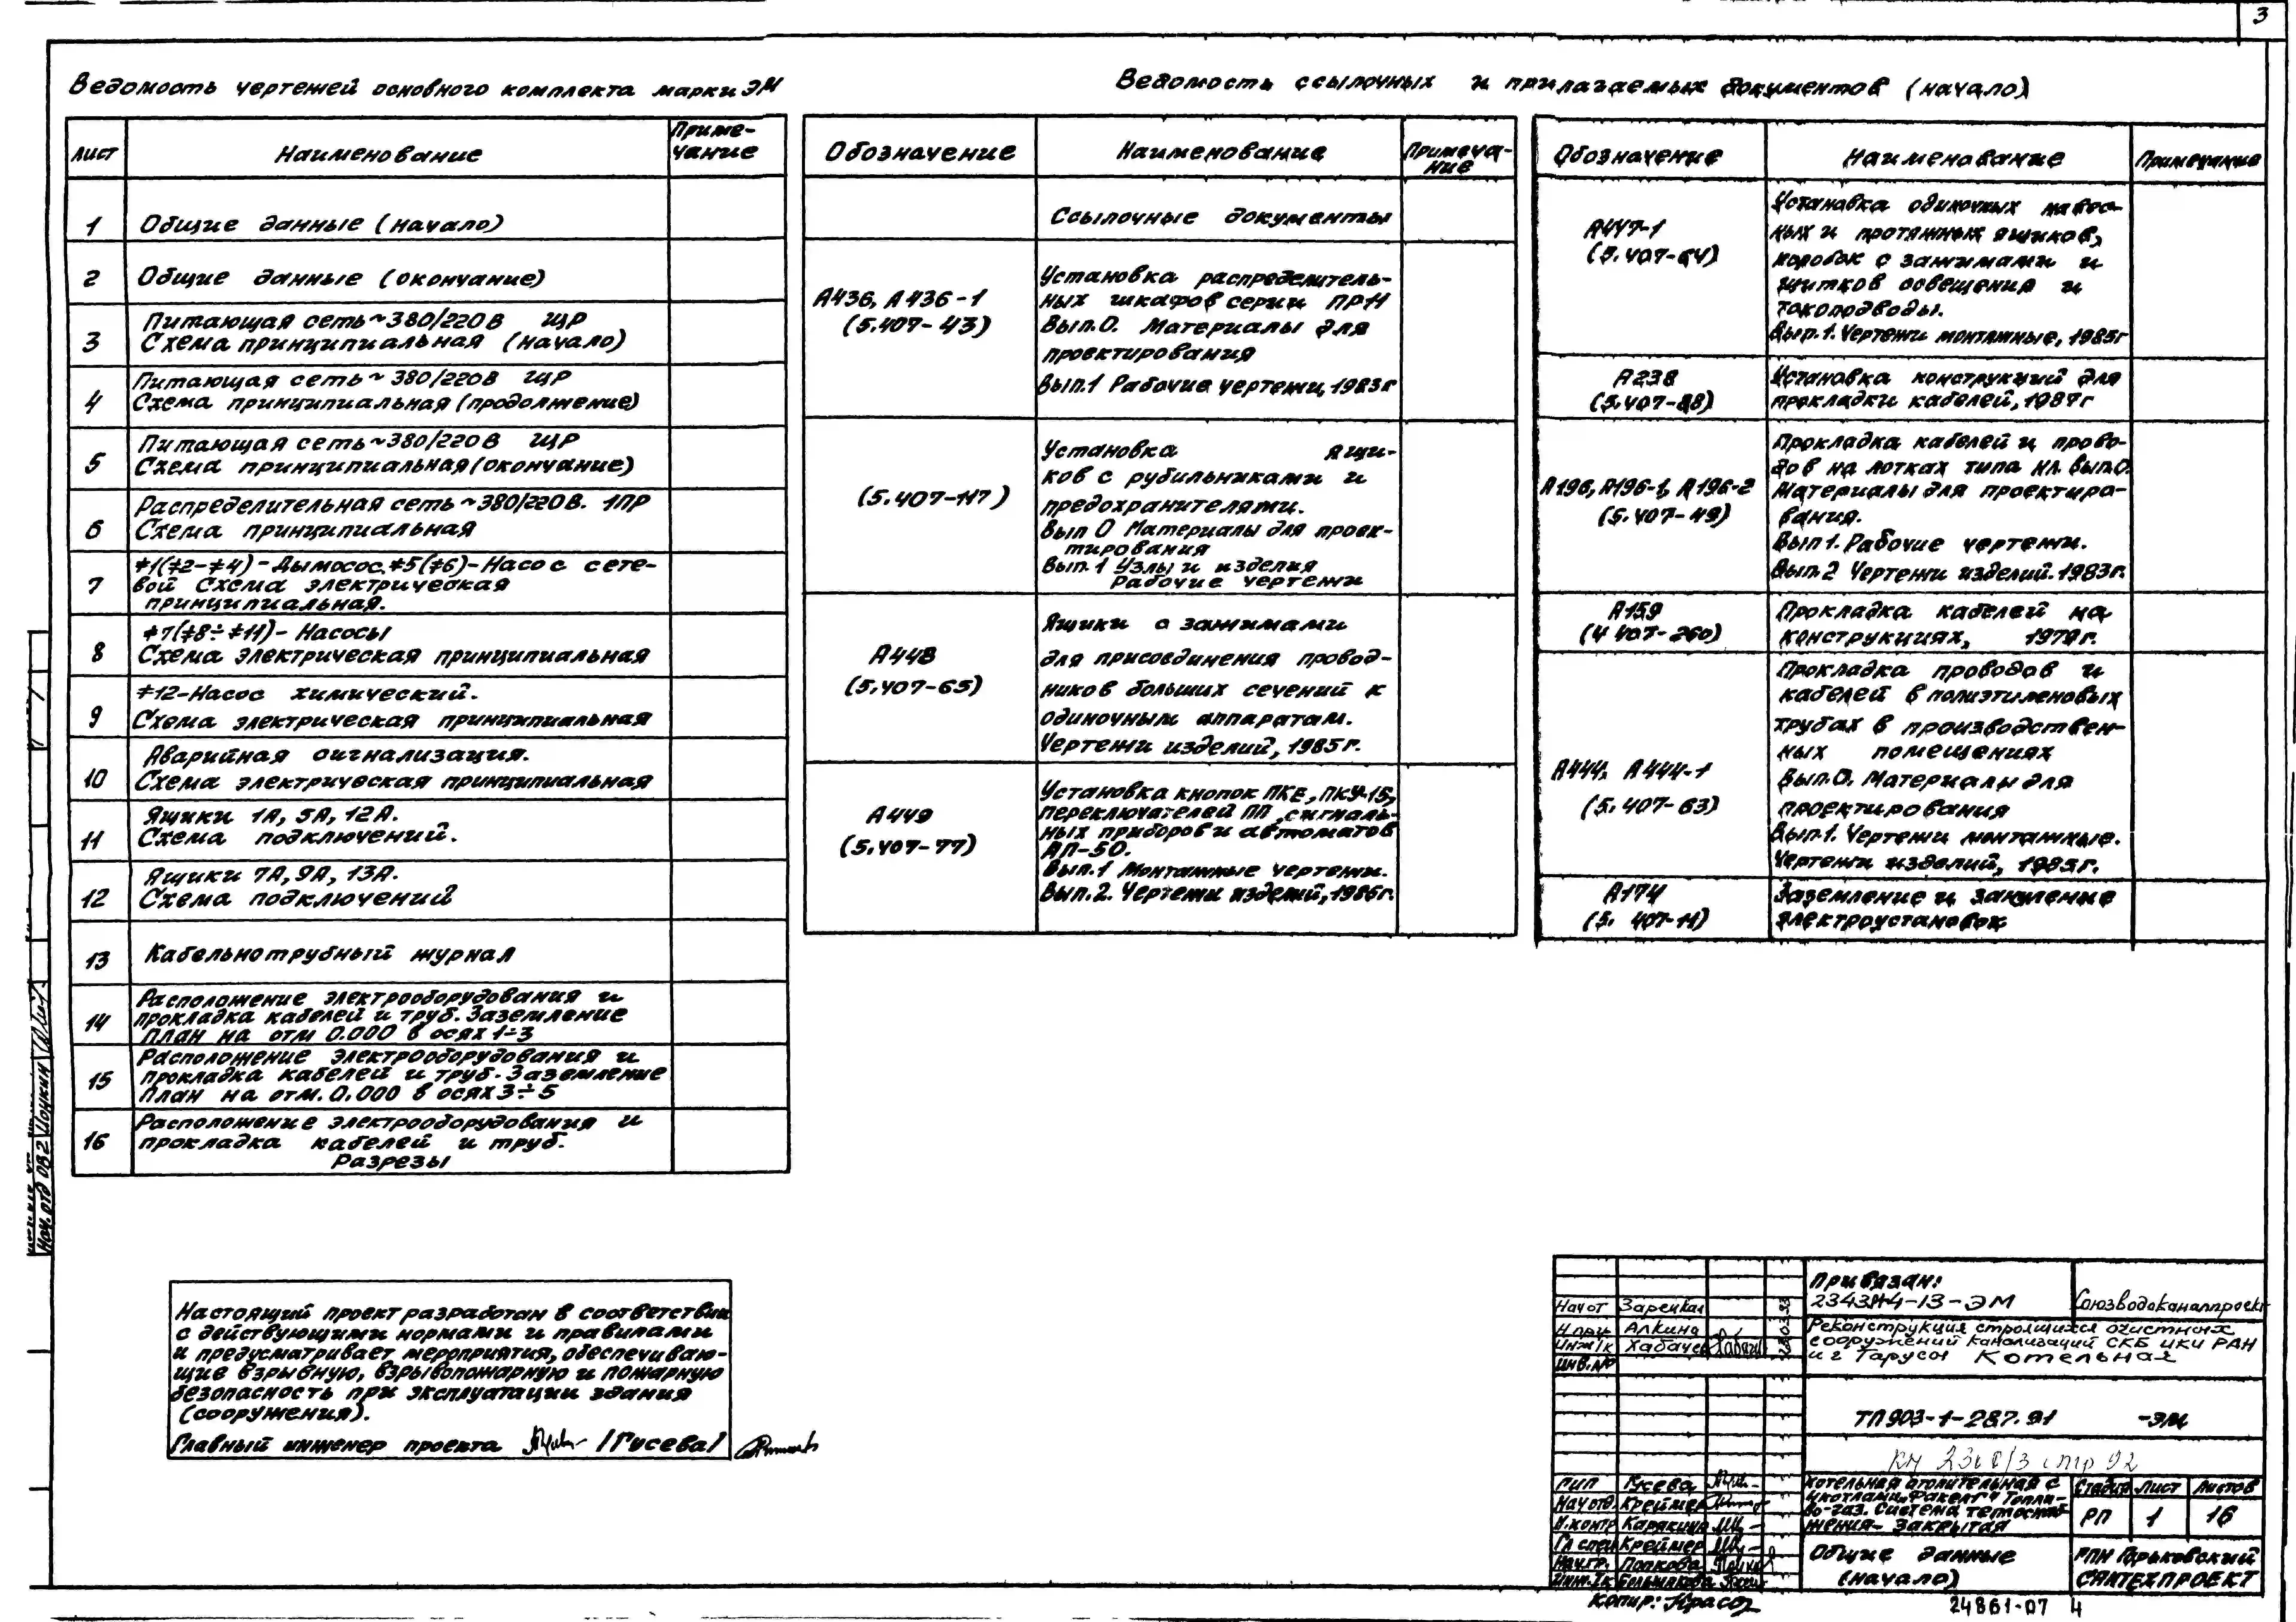 3
Ведомость чертежей основного комплекта марки ЭМ
Лист Наименование Приме-
чание
1 Общие данные (начало)
2 Общие данные (окончание)
Питающая сеть ~380/220В ЩР
3 Схема принципиальная (начало)
Питающая сеть ~ 380/220В ЩР
4 Схема принципиальная (продолжение)
Питающая сеть ~380/220В ЩР
5 Схема принципиальная (окончание)
Распределительная сеть ~380/220В. 1ПР
6 Схема принципиальная
≠1(≠2-≠4) - Дымосос, ≠5(≠6) - Насос сете-
7 вой Схема электрическая
принципиальная.
≠7(≠8÷≠11) - Насосы
8 Схема электрическая принципиальная
≠12-Насос химический.
9 Схема электрическая принципиальная
Аварийная сигнализация.
10 Схема электрическая принципиальная
Ящики 1А, 5А, 12А.
11 Схема подключений.
Ящики 7А, 9А, 13А.
12 Схема подключений
13 Кабельнотрубный журнал
Расположение электрооборудования и
14 прокладка кабелей и труб. Заземление
План на отм 0.000 в осях 1÷3
Расположение электрооборудования и
15 прокладка кабелей и труб. Заземление
План на отм. 0.000 в осях 3÷5
Расположение электрооборудования и
16 прокладка кабелей и труб.
Разрезы
Ведомость ссылочных и прилагаемых документов (начало)
Обозначение Наименование Примеча-
ние
Ссылочные документы
А436, А436-1
(5.407-43)
Установка распределитель-
ных шкафов серии ПРН
Вып.0. Материалы для
проектирования
Вып.1 Рабочие чертежи, 1983г
(5.407-117)
Установка ящи-
ков с рубильниками и
предохранителями.
Вып 0 Материалы для проек-
тирования
Вып.1 Узлы и изделия
Рабочие чертежи
А448
(5.407-65)
Ящики с зажимами
для присоединения провод-
ников больших сечений к
одиночным аппаратам.
Чертежи изделий, 1985г.
А449
(5.407-77)
Установка кнопок ПКЕ, ПКУ-15,
переключателей ПП, сигналь-
ных приборов и автоматов
АП-50.
Вып.1 Монтажные чертежи.
Вып.2. Чертежи изделий, 1986г.
Обозначение Наименование Примечание
А447-1
(5.407-64)
Установка одиночных навес-
ных и протяжных ящиков,
коробок с зажимами и
щитков освещения и
токоподводы.
Вып.1. Чертежи монтажные, 1985г
А238
(5.407-88)
Установка конструкций для
прокладки кабелей, 1987г
А196, А196-1, А196-2
(5.407-49)
Прокладка кабелей и прово-
дов на лотках типа НЛ. Вып.0.
Материалы для проектиро-
вания.
Вып 1. Рабочие чертежи.
Вып.2 Чертежи изделий. 1983г.
А159
(4.407-260)
Прокладка кабелей на
конструкциях, 1979г.
А444, А444-1
(5.407-63)
Прокладка проводов и
кабелей в полиэтиленовых
трубах в производствен-
ных помещениях
Вып.0. Материалы для
проектирования
Вып.1. Чертежи монтажные.
Чертежи изделий, 1985г.
А174
(5.407-11)
Заземление и зануление
электроустановок
Настоящий проект разработан в соответствии
с действующими нормами и правилами
и предусматривает мероприятия, обеспечиваю-
щие взрывную, взрывопожарную и пожарную
безопасность при эксплуатации здания
(сооружения).
Главный инженер проекта /Гусева/
Нач.отд ОВ2 Цочкин
Привязан:
2343А4-13-ЭМ Союзводоканалпроект
Нач от Зарецкая
Н.про Алкина
Инж Iк Хабачев
Инв.№
Реконструкция строящихся очистных
сооружений канализаций СКБ ИКИ РАН
и г Тарусы Котельная
ТП903-1-287.91 -ЭМ
ГИП Гусева
Нач отд. Креймер
Н.контр Карякина
Гл спец Креймер
Нач.гр. Попкова
Инж.Iк Большакова
Котельная отопительная с
4 котлами „Факел-Г“ Топли-
во-газ. Система теплоснаб-
жения- закрытая
Стадия Лист Листов
РП 1 16
Общие данные
(начало)
ГПИ Горьковский
САНТЕХПРОЕКТ
Копир:
24861-07 4